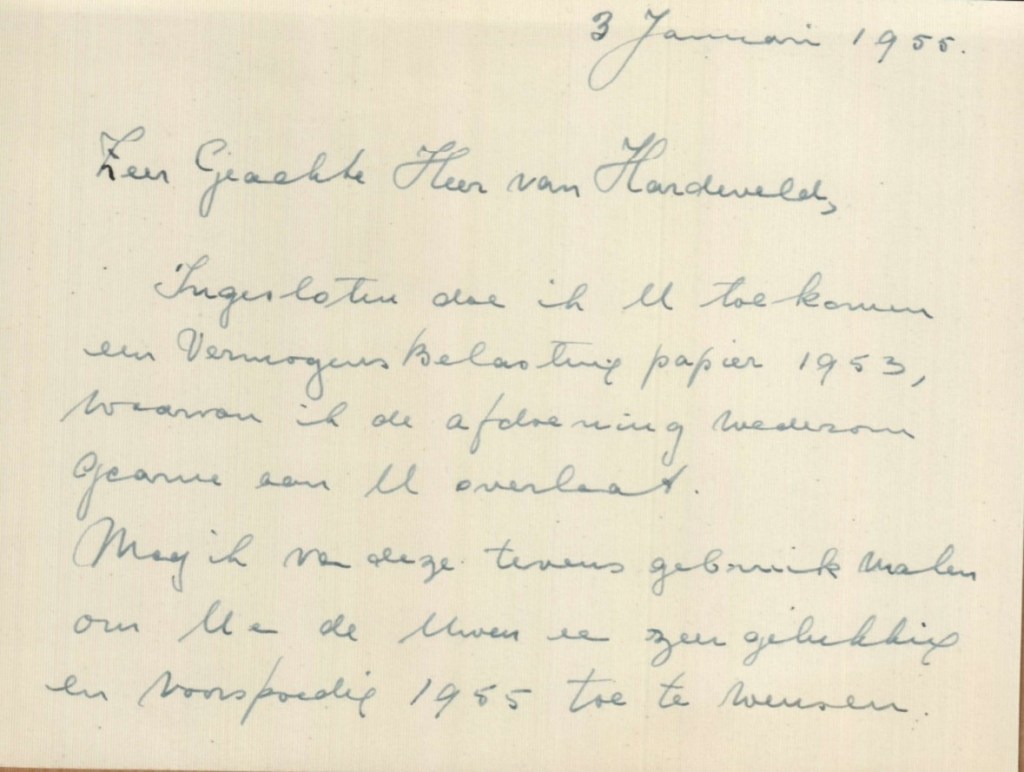 3 Januari 1955.
Zeer Geachte Heer van Hardeveld,
Ingesloten doe ik U toekomen
een Vermogens Belasting papier 1953,
waarvan ik de afdoening wederom
gaarne aan U overlaat.
Mag ik van deze tevens gebruik maken
om U en de Uwen een zeer gelukkig
en voorspoedig 1955 toe te wensen.